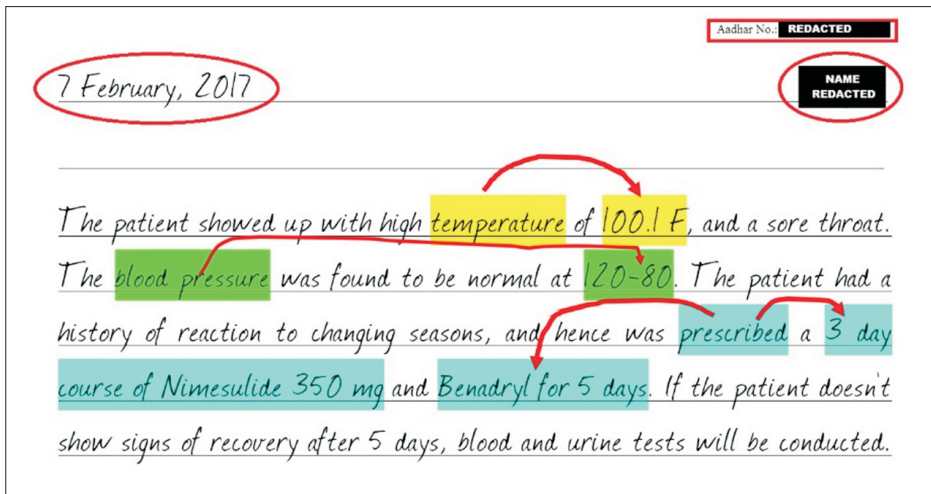 Aadhar No.: REDACTED
7 February, 2017
NAME
REDACTED
The patient showed up with high temperature of 100.1 F, and a sore throat.
The blood pressure was found to be normal at 120-80. The patient had a
history of reaction to changing seasons, and hence was prescribed a 3 day
course of Nimesulide 350 mg and Benadryl for 5 days. If the patient doesn't
show signs of recovery after 5 days, blood and urine tests will be conducted.